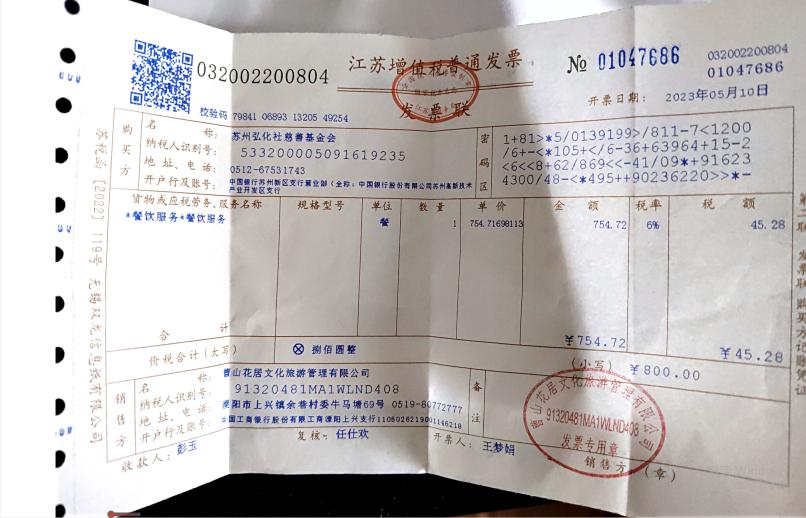 032002200804
江苏增值税普通发票
发票联
№ 01047686
032002200804
01047686
校验码 79841 06893 13205 49254
开票日期: 2023年05月10日
购买方
名 称: 苏州弘化社慈善基金会
纳税人识别号: 533200005091619235
地址、电话: 0512-67531743
开户行及账号: 中国银行苏州新区支行营业部(全称:中国银行股份有限公司苏州高新技术产业开发区支行
密码区
1+81>*5/0139199>/811-7<1200
/6+-<*105+</6-36+63964+15-2
<6<<8+62/869<<-41/09*+91623
4300/48-<*495++90236220>>*-
货物或应税劳务、服务名称 规格型号 单位 数量 单价 金额 税率 税额
*餐饮服务*餐饮服务 餐 1 754.71698113 754.72 6% 45.28
合 计 ¥754.72 ¥45.28
价税合计(大写) ⊗ 捌佰圆整 (小写) ¥800.00
销售方
名 称: 曹山花居文化旅游管理有限公司
纳税人识别号: 91320481MA1WLND408
地址、电话: 溧阳市上兴镇余巷村委牛马塘69号 0519-80772777
开户行及账号: 中国工商银行股份有限工商溧阳上兴支行1105026219001146218
备注
收款人: 彭玉 复核: 任仕欢 开票人: 王梦娟 销售方:(章)
曹山花居文化旅游管理有限公司
91320481MA1WLND408
发票专用章
苏税函〔2022〕119号 无锡双龙信息纸有限公司
第二联 发票联 购买方记账凭证